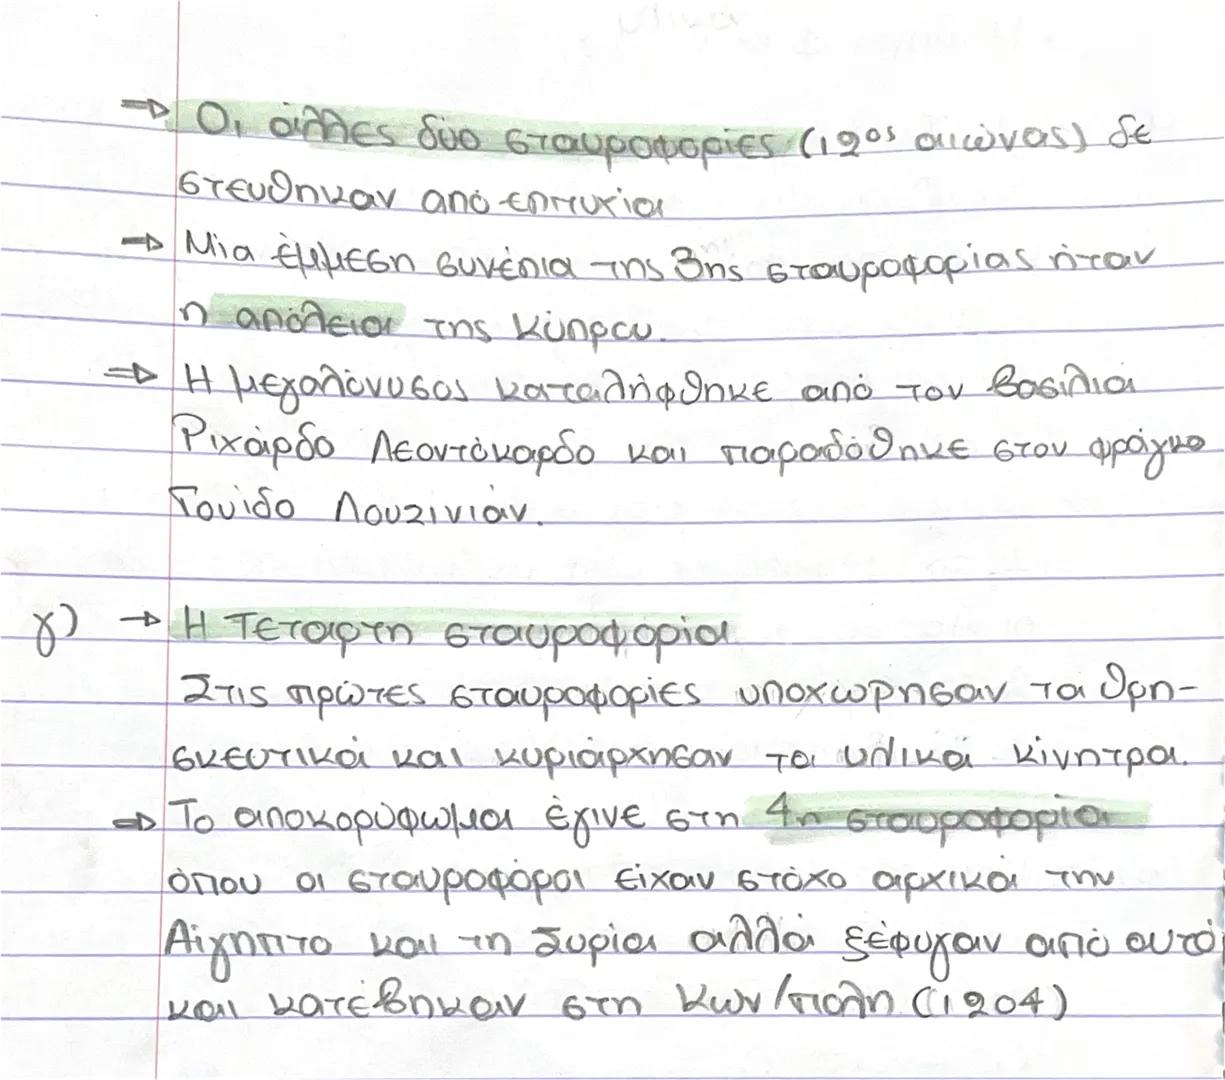 ⇒ Οι άλλες δύο σταυροφορίες (12ος αιώνας) δε
στευθηκαν από επιτυχία
⇒ Μια έμμεση συνέπια της 3ης σταυροφορίας ήταν
η απόλεια της Κύπρου.
⇒ Η μεγαλόνυσος καταλήφθηκε από τον βασιλιά
Ριχάρδο Λεοντόκαρδο και παραδόθηκε στον φράγκο
Γουίδο Λουζινιάν.
γ) → Η Τετάρτη σταυροφορία
Στις πρώτες σταυροφορίες υποχώρησαν τα θρη-
σκευτικά και κυριάρχησαν τα υλικά κίνητρα.
⇒ Το αποκορύφωμα έγινε στη 4η σταυροφορία
όπου οι σταυροφόροι είχαν στόχο αρχικά την
Αίγηπτο και τη Συρία αλλά ξέφυγαν από αυτό
και κατέβηκαν στη Κων/πολη (1204)